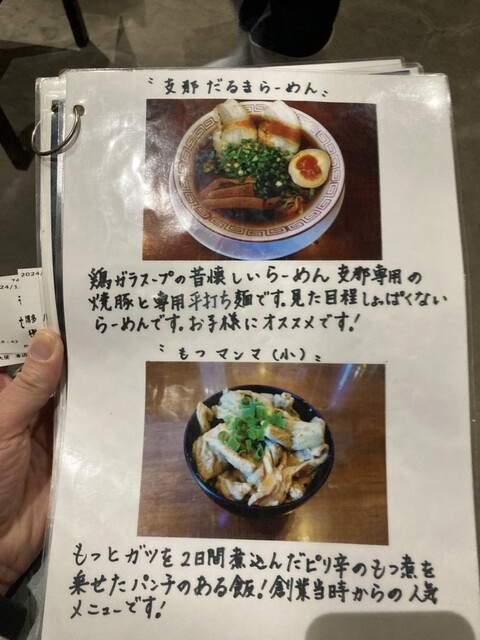 〝支那だるまらーめん〟
鶏ガラスープの昔懐しいらーめん 支那専用の
焼豚と専用平打ち麺です。見た目程しょっぱくない
らーめんです。お子様にオススメです!
〝もつマンマ(小)〟
もっとガツを2日間煮込んだピリ辛のもつ煮を
乗せたパンチのある飯!創業当時からの人気
メニューです!
2024/